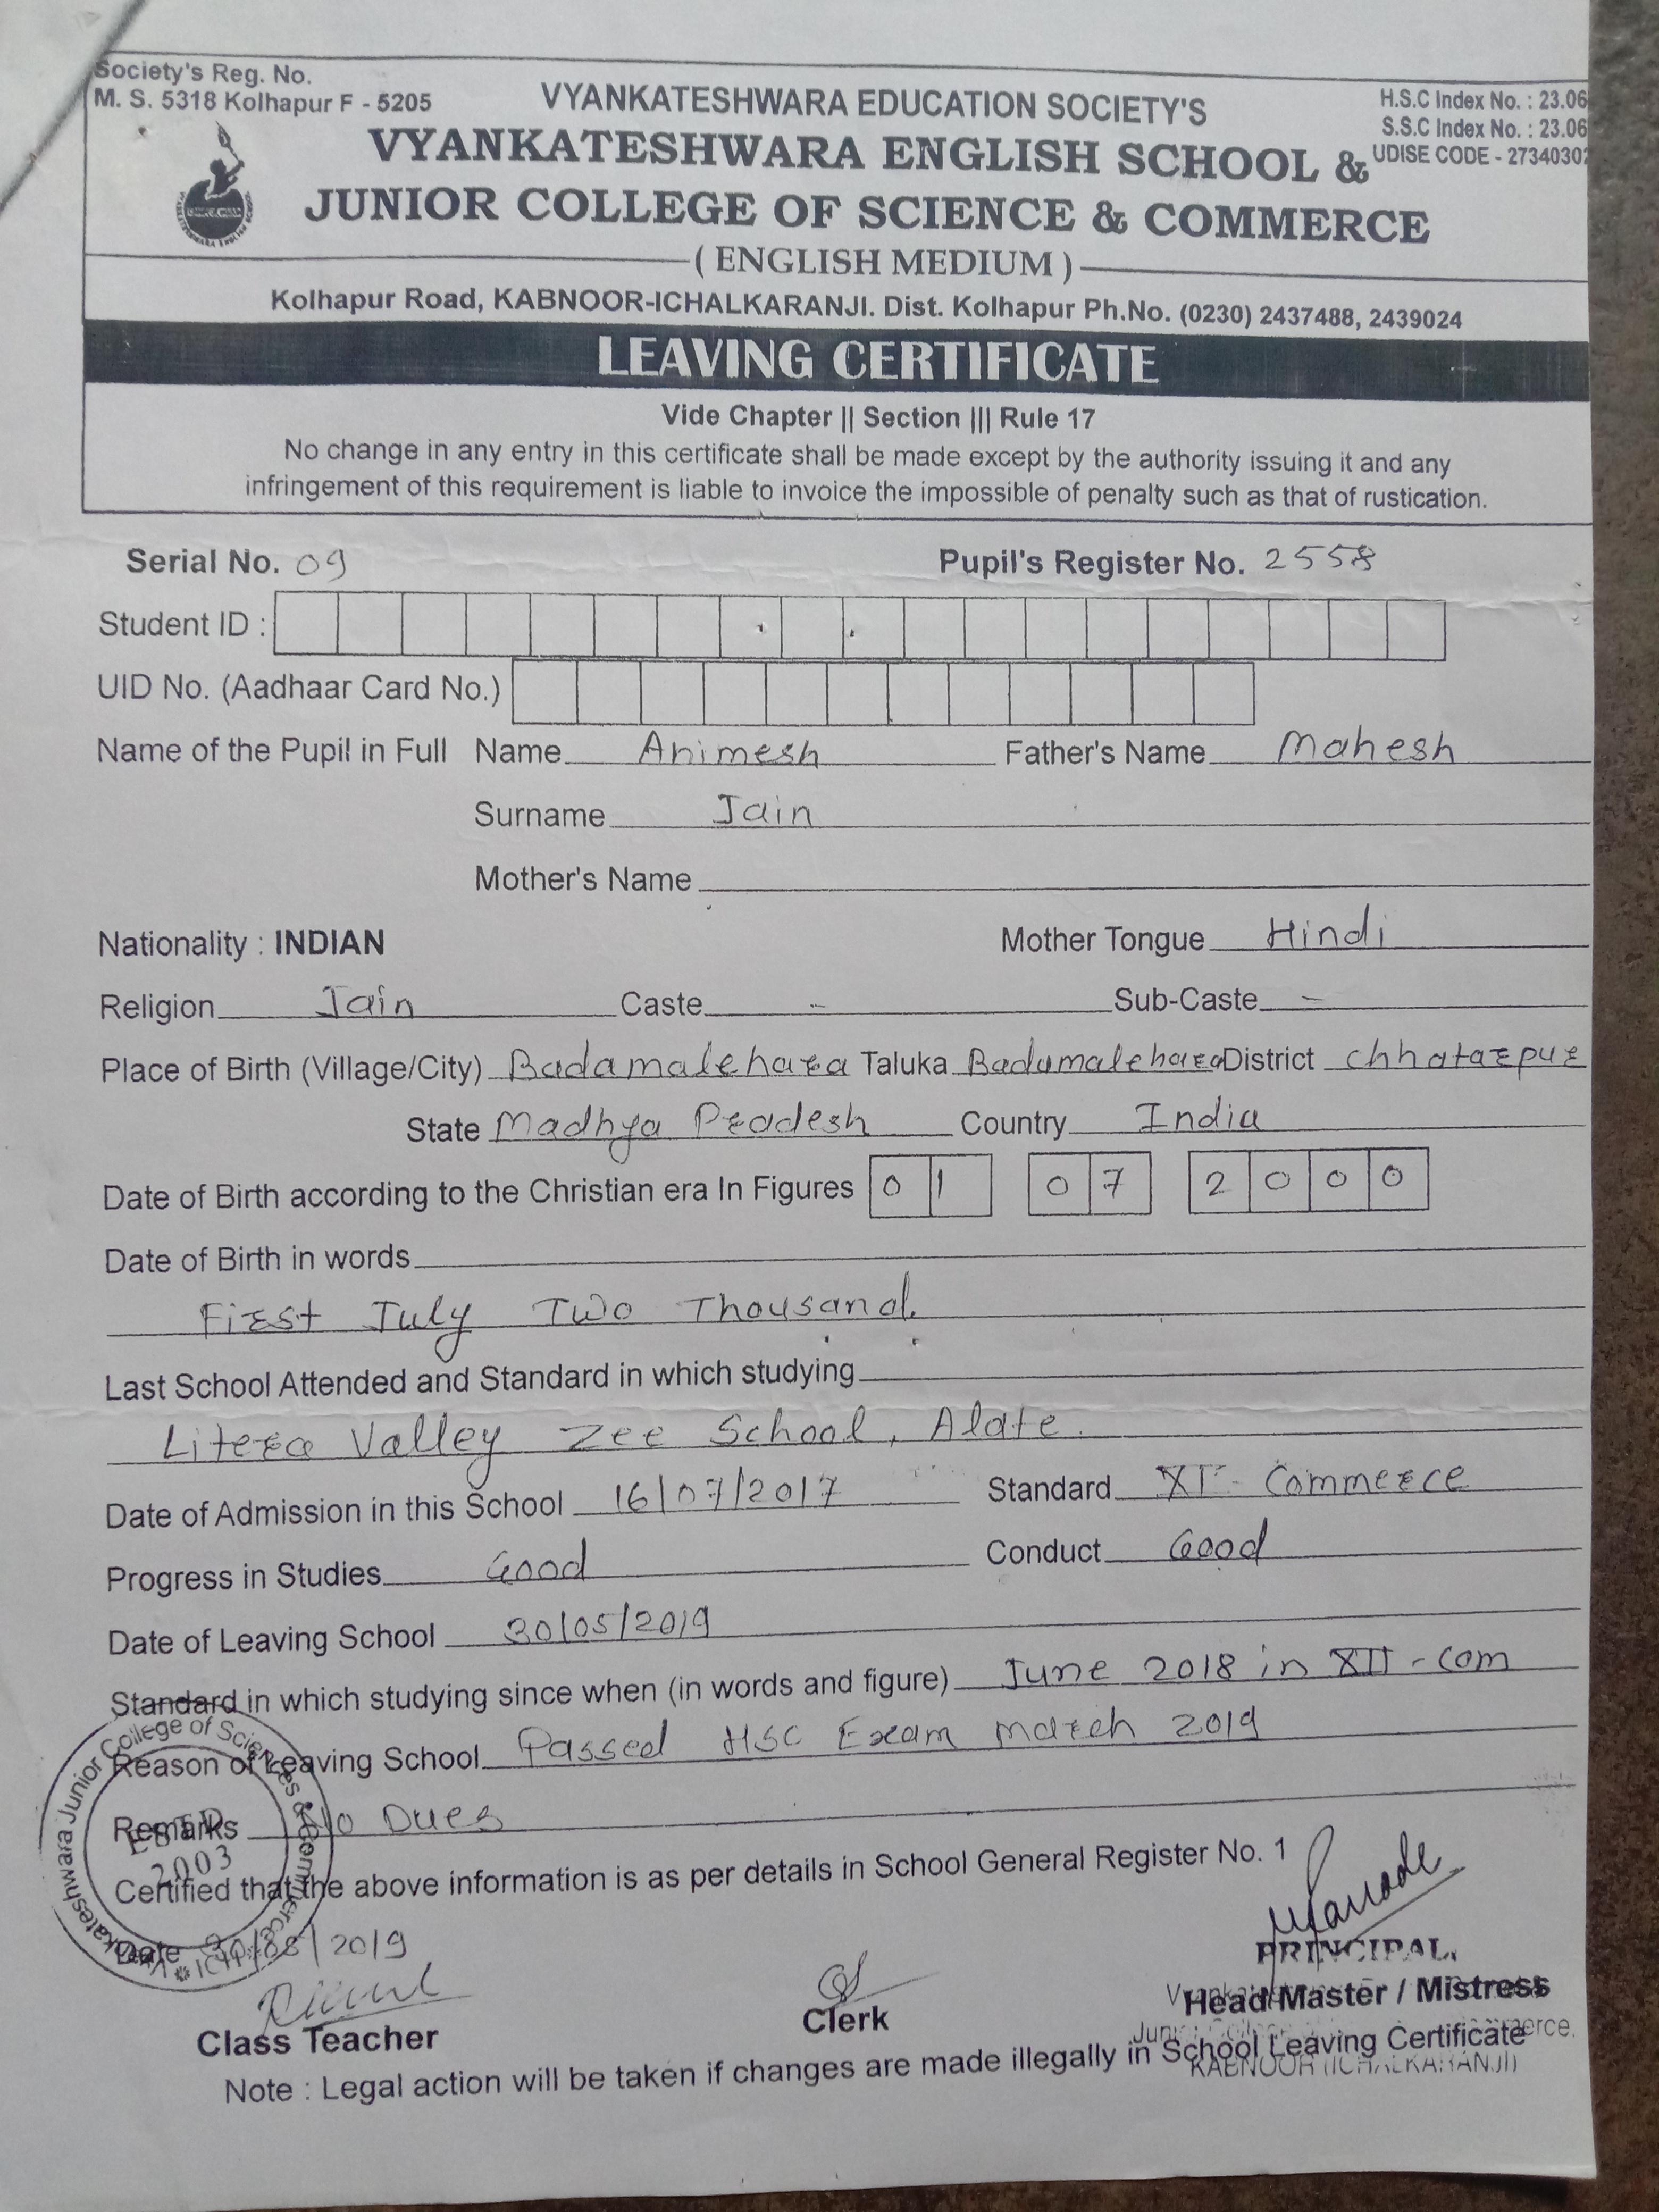 Society's Reg. No.
M. S. 5318 Kolhapur F - 5205
H.S.C Index No. : 23.06
S.S.C Index No. : 23.06
UDISE CODE - 2734030
VYANKATESHWARA EDUCATION SOCIETY'S
VYANKATESHWARA ENGLISH SCHOOL &
JUNIOR COLLEGE OF SCIENCE & COMMERCE
( ENGLISH MEDIUM )
Kolhapur Road, KABNOOR-ICHALKARANJI. Dist. Kolhapur Ph.No. (0230) 2437488, 2439024
LEAVING CERTIFICATE
Vide Chapter || Section ||| Rule 17
No change in any entry in this certificate shall be made except by the authority issuing it and any
infringement of this requirement is liable to invoice the impossible of penalty such as that of rustication.
Serial No. 09 Pupil's Register No. 2558
Student ID :
UID No. (Aadhaar Card No.)
Name of the Pupil in Full Name Animesh Father's Name Mahesh
Surname Jain
Mother's Name
Nationality : INDIAN Mother Tongue Hindi
Religion Jain Caste - Sub-Caste -
Place of Birth (Village/City) Badamalehara Taluka Badamalehara District chhatarpur
State Madhya Pradesh Country India
Date of Birth according to the Christian era In Figures 01 07 2000
Date of Birth in words
First July Two Thousand.
Last School Attended and Standard in which studying
Litera Valley Zee School, Alate.
Date of Admission in this School 16/07/2017 Standard XI - Commerce
Progress in Studies Good Conduct Good
Date of Leaving School 30/05/2019
Standard in which studying since when (in words and figure) June 2018 in XII - Com
Reason of Leaving School Passed HSC Exam March 2019
Remarks No Dues
Certified that the above information is as per details in School General Register No. 1
Date 30/05/2019
ESTD
2003
PRINCIPAL,
Class Teacher Clerk Head Master / Mistress
KABNOOR (ICHALKARANJI)
Note : Legal action will be taken if changes are made illegally in School Leaving Certificate